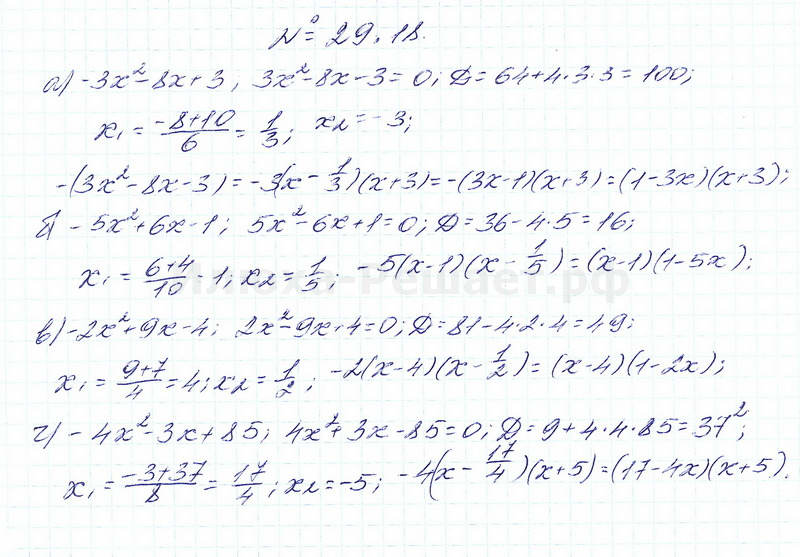 № 29.18.
а) -3x²-8x+3, 3x²-8x-3=0; Д=64+4·3·3=100;
x₁=(-8+10)/6=1/3; x₂=-3;
-(3x²-8x-3)=-3(x-1/3)(x+3)=-(3x-1)(x+3)=(1-3x)(x+3);
б) -5x²+6x-1; 5x²-6x+1=0; Д=36-4·5=16;
x₁=(6+4)/10=1; x₂=1/5; -5(x-1)(x-1/5)=(x-1)(1-5x);
Илюха-Решает.рф
в) -2x²+9x-4; 2x²-9x+4=0; Д=81-4·2·4=49;
x₁=(9+7)/4=4; x₂=1/2; -2(x-4)(x-1/2)=(x-4)(1-2x);
г) -4x²-3x+85; 4x²+3x-85=0; Д=9+4·4·85=37²;
x₁=(-3+37)/8=17/4; x₂=-5; -4(x-17/4)(x+5)=(17-4x)(x+5).